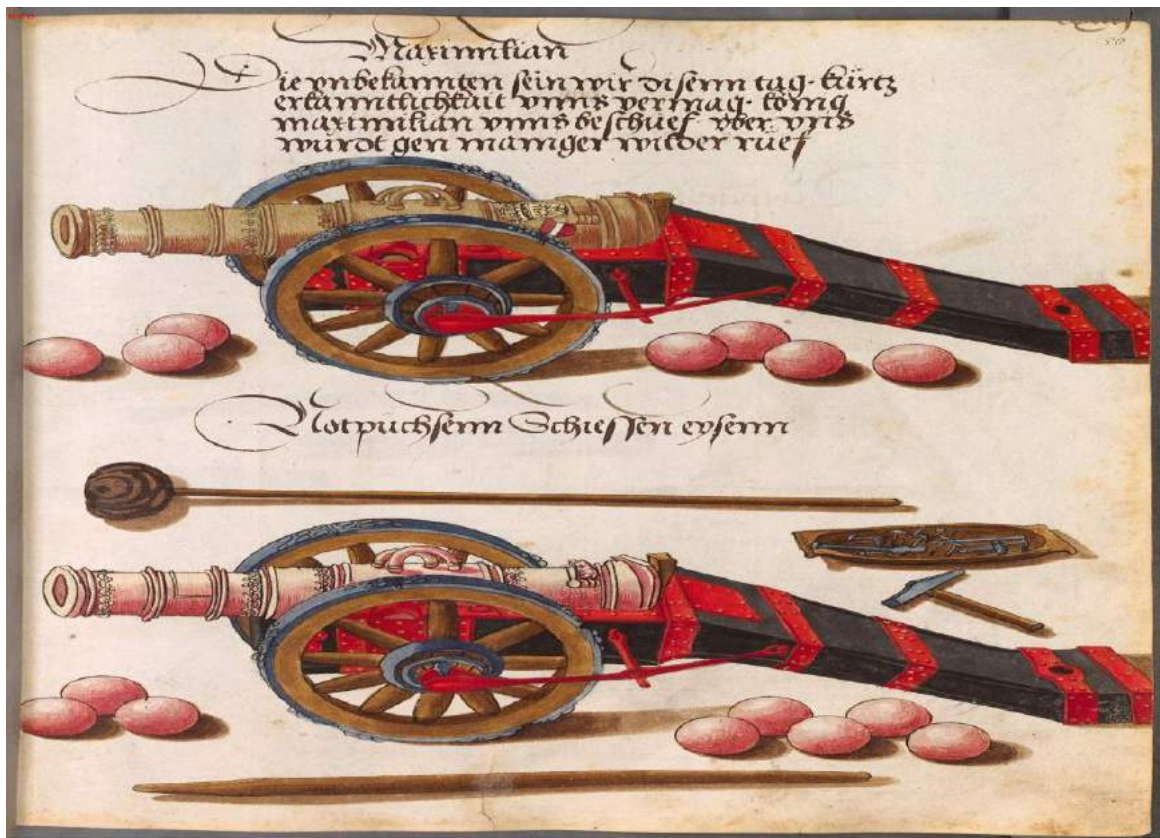 Maximilian
Die vnbekannten sein wir disenn tag · kürtz
erkanntlichkait vnns vermag · könig
maximilian vnns beschuef · vber vns
würdt gen maniger wilder rüef
50
Notpuchsenn Schiessen eysenn